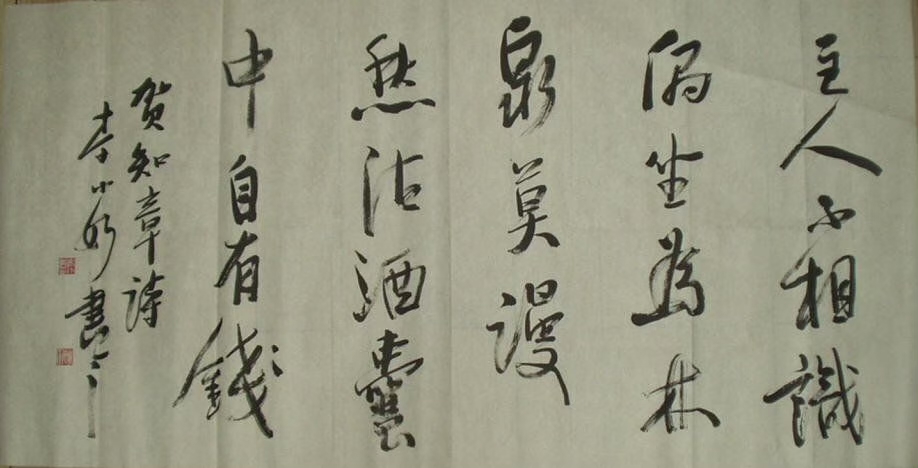 主人不相識
偶坐為林
泉莫謾
愁沽酒囊
中自有錢
賀知章詩
李小
書